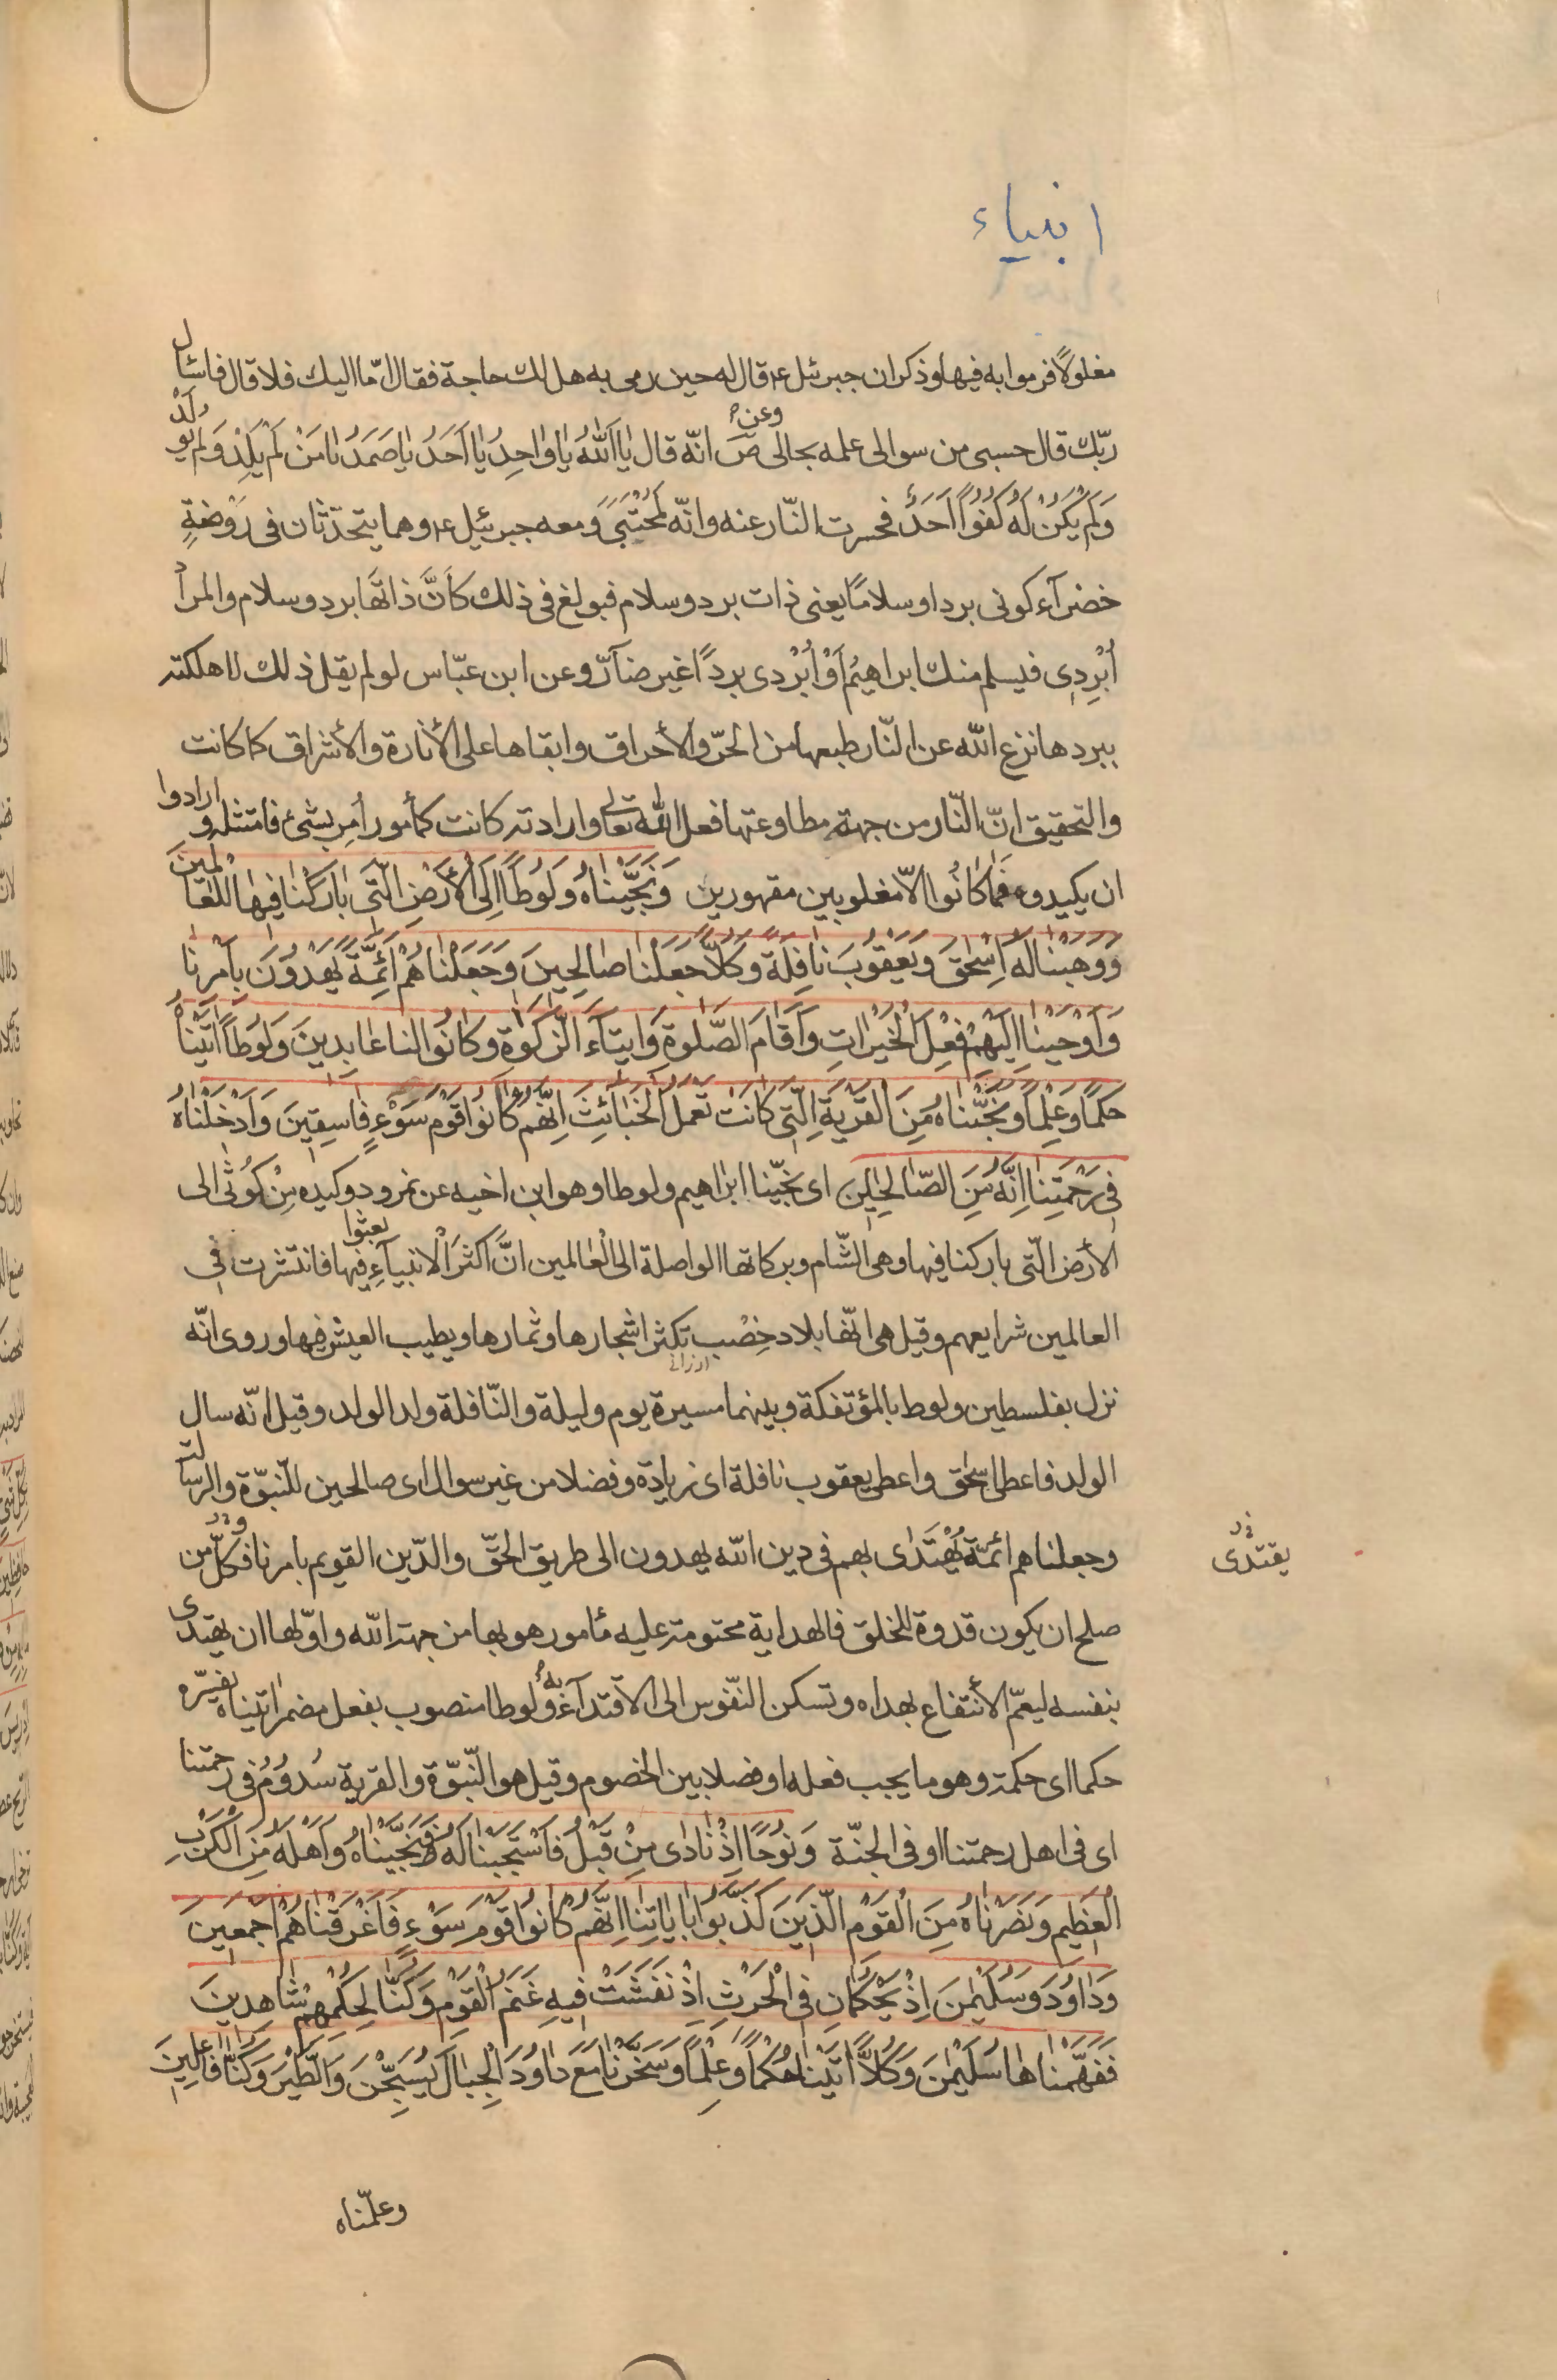 انبياء
مغلولاً فرموا به فيها وذكر ان جبرئيل ع قال له حين رمى به هل لك حاجة فقال امّا اليك فلا قال فاسئل
ربّك قال حسبى من سوالى علمه بحالى وعن ص انّه قال يا اَللّٰهُ يا واحِدُ يا اَحَدُ يا صَمَدُ يا مَنْ لَمْ يَلِدْ وَلَمْ يُولَدْ
وَلَمْ يَكُنْ لَهُ كُفُوًا اَحَدٌ فحسرت النّار عنه وانّه لَمُحْتَبى ومعه جبرئيل ع وهما يتحدّثان فى رَوْضَةٍ
خضرآء كونى بردا وسلامًا يعنى ذات برد وسلام فبولغ فى ذلك كَاَنَّ ذاتَها برد وسلام والمراد
اُبْرِدِى فيسلم منك ابراهيمُ اَوْ اُبْرُدى بردًا غير ضآرّ وعن ابن عبّاس لو لم يقل ذلك لاهلكته
ببردها نزع اللّه عن النّار طبعها من الحرّ والأحراق وابقاها على الأنارة والأشراق كما كانت
والتحقيق انّ النّار من جهة مطاوعتها فعل اللّه تعالى وارادته كانت كمأمور اُمِر بشىء فامتثله و ارادوا
ان يكيدوه فَما كانُوا الاّ مغلوبين مقهورين وَنَجَّيْناهُ وَلُوطًا اِلَى الْأَرْضِ الَّتى بارَكْنا فيها لِلْعالَمينَ
وَوَهَبْنا لَهُ اِسْحٰقَ وَيَعْقُوبَ نافِلَةً وَكُلاًّ جَعَلْنا صالِحينَ وَجَعَلْناهُمْ اَئِمَّةً يَهْدُونَ بِاَمْرِنا
وَاَوْحَيْنا اِلَيْهِمْ فِعْلَ الْخَيْراتِ وَاَقامَ الصَّلوةِ وَايتآءَ الزَّكوةِ وَكانُوا لَنا عابِدينَ وَلُوطًا اتَيْناهُ
حُكْمًا وَعِلْمًا وَنَجَّيْناهُ مِنَ الْقَرْيَةِ الَّتى كانَتْ تَعْمَلُ الْخَبائِثَ اِنَّهُمْ كانُوا قَوْمَ سَوْءٍ فاسِقينَ وَاَدْخَلْناهُ
فى رَحْمَتِنا اِنَّهُ مِنَ الصّالِحينَ اى نجّينا ابراهيم ولوطا وهو ابن اخيه عن نمرود وكيده مِنْ كُوثى الى
الأرض الّتى باركنا فيها وهى الشّام وبركاتها الواصلة الى العالمين انَّ اكثرَ الانبيآءِ بعثوا فيها فانتشرت فى
العالمين شرايعهم وقيل هى انّها بلاد خِصْب تكثر اشجارها وثمارها ويطيب العيش فيها وروى انّه
ارزانى
نزل بفلسطين ولوط بالمؤتفكة وبينهما مسيرة يوم وليلة والنّافلة ولد الولد وقيل انّه سال
الولد فاعطى اسحٰق واعطى يعقوب نافلة اى زيادة وفضلا من غير سوال اى صالحين للنّبوّة والرسالة
وجعلناهم ائمّة يُهْتَدٰى بهم فى دين اللّه يهدون الى طريق الحقّ والدّين القويم بامرنا فكلّ من
يقتدى
صلح ان يكون قدوة للخلق فالهداية محتومة عليه مأمور هو بها من جهة اللّه واوّلها ان يهتدى
بنفسه ليعمّ الأنتفاع بهداه وتسكن النّفوس الى الاقتدآء به ولوطا منصوب بفعل مضمر اتيناه يفسّره
حكما اى حكمة وهو ما يجب فعله او فضلا بين الخصوم وقيل هو النّبوّة والقرية سُدُومُ فى رحمتنا
اى فى اهل رحمتنا او فى الجنّة وَنُوحًا اِذْ نادى مِنْ قَبْلُ فَاسْتَجَبْنا لَهُ فَنَجَّيْناهُ وَاَهْلَهُ مِنَ الْكَرْبِ
الْعَظيمِ وَنَصَرْناهُ مِنَ الْقَوْمِ الَّذينَ كَذَّبُوا بِاياتِنا اِنَّهُمْ كانُوا قَوْمَ سَوْءٍ فَاَغْرَقْناهُمْ اَجْمَعينَ
وَداوُدَ وَسُلَيْمنَ اِذْ يَحْكُمانِ فى الْحَرْثِ اِذْ نَفَشَتْ فيهِ غَنَمُ الْقَوْمِ وَكُنّا لِحُكْمِهِمْ شاهِدينَ
فَفَهَّمْناها سُلَيْمنَ وَكُلاًّ اتَيْنا حُكْمًا وَعِلْمًا وَسَخَّرْنا مَعَ داوُدَ الْجِبالَ يُسَبِّحْنَ وَالطَّيْرَ وَكُنّا فاعِلينَ
وعلّمناه